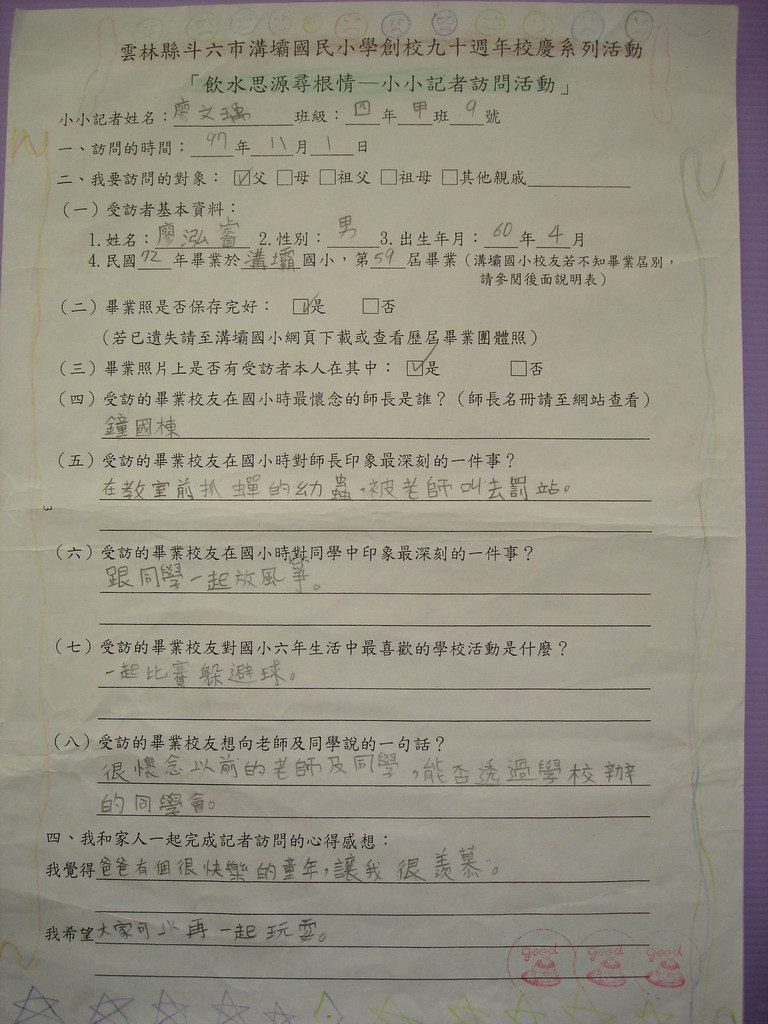 雲林縣斗六市溝壩國民小學創校九十週年校慶系列活動
「飲水思源尋根情—小小記者訪問活動」
小小記者姓名：廖文瑀 班級：四年甲班9號
一、訪問的時間：97年11月1日
二、我要訪問的對象：☑父 □母 □祖父 □祖母 □其他親戚
（一）受訪者基本資料：
1.姓名：廖泓睿 2.性別：男 3.出生年月：60年4月
4.民國72年畢業於溝壩國小，第59屆畢業（溝壩國小校友若不知畢業屆別，
請參閱後面說明表）
（二）畢業照是否保存完好：☑是 □否
（若已遺失請至溝壩國小網頁下載或查看歷屆畢業團體照）
（三）畢業照片上是否有受訪者本人在其中：☑是 □否
（四）受訪的畢業校友在國小時最懷念的師長是誰？（師長名冊請至網站查看）
鐘國棟
（五）受訪的畢業校友在國小時對師長印象最深刻的一件事？
在教室前抓蟬的幼蟲，被老師叫去罰站。
3
（六）受訪的畢業校友在國小時對同學中印象最深刻的一件事？
跟同學一起放風箏。
（七）受訪的畢業校友對國小六年生活中最喜歡的學校活動是什麼？
一起比賽躲避球。
（八）受訪的畢業校友想向老師及同學說的一句話？
很懷念以前的老師及同學，能否透過學校辦
的同學會。
四、我和家人一起完成記者訪問的心得感想：
我覺得爸爸有個很快樂的童年，讓我很羨慕。
我希望大家可以再一起玩耍。
good good good